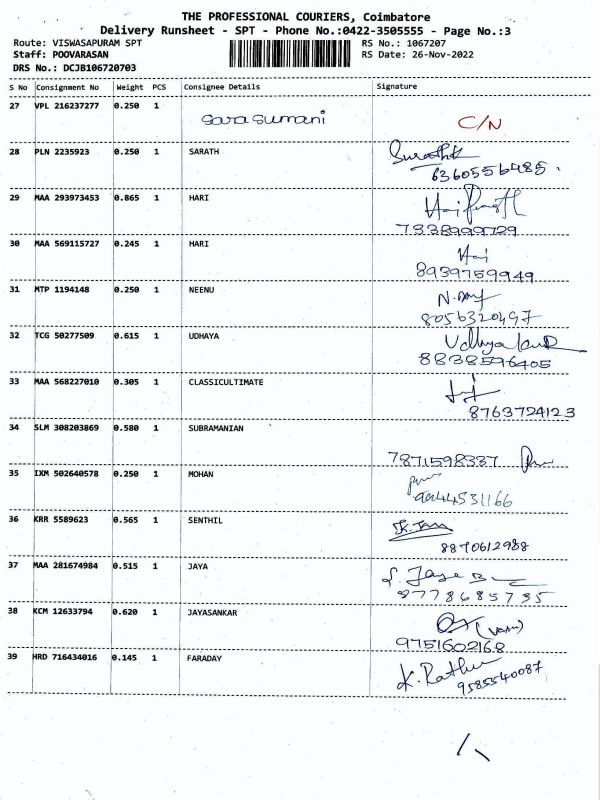 THE PROFESSIONAL COURIERS, Coimbatore
Delivery Runsheet - SPT - Phone No.:0422-3505555 - Page No.:3
Route: VISWASAPURAM SPT RS No.: 1067207
Staff: POOVARASAN RS Date: 26-Nov-2022
DRS No.: DCJB106720703
S No Consignment No Weight PCS Consignee Details Signature
27 VPL 216237277 0.250 1 Sarasumani C/N
28 PLN 2235923 0.250 1 SARATH
6360556485.
29 MAA 293973453 0.865 1 HARI
7338999729
30 MAA 569115727 0.245 1 HARI Hari
8939759949
31 MTP 1194148 0.250 1 NEENU
8056320497
32 TCG 50277509 0.615 1 UDHAYA
8838596405
33 MAA 568227010 0.305 1 CLASSICULTIMATE
8763724123
34 SLM 308203869 0.580 1 SUBRAMANIAN
7871598387
35 IXM 502640578 0.250 1 MOHAN
9944531166
36 KRR 5589623 0.565 1 SENTHIL
8870612988
37 MAA 281674984 0.515 1 JAYA
9778685735
38 KCM 12633794 0.620 1 JAYASANKAR
9751602168
39 HRD 716434016 0.145 1 FARADAY K. Rathu
9585540087